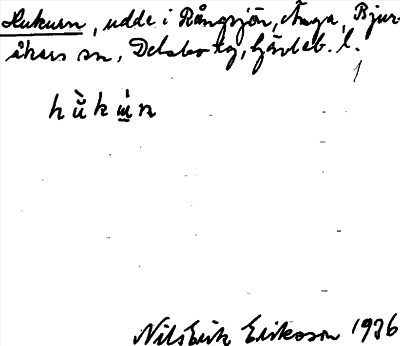 Hukurn, udde i Rångsjön, Ånga, Bjur-
åkers sn, Delsbo tg, Gävleb. l.
Nils Erik Eriksson 1936